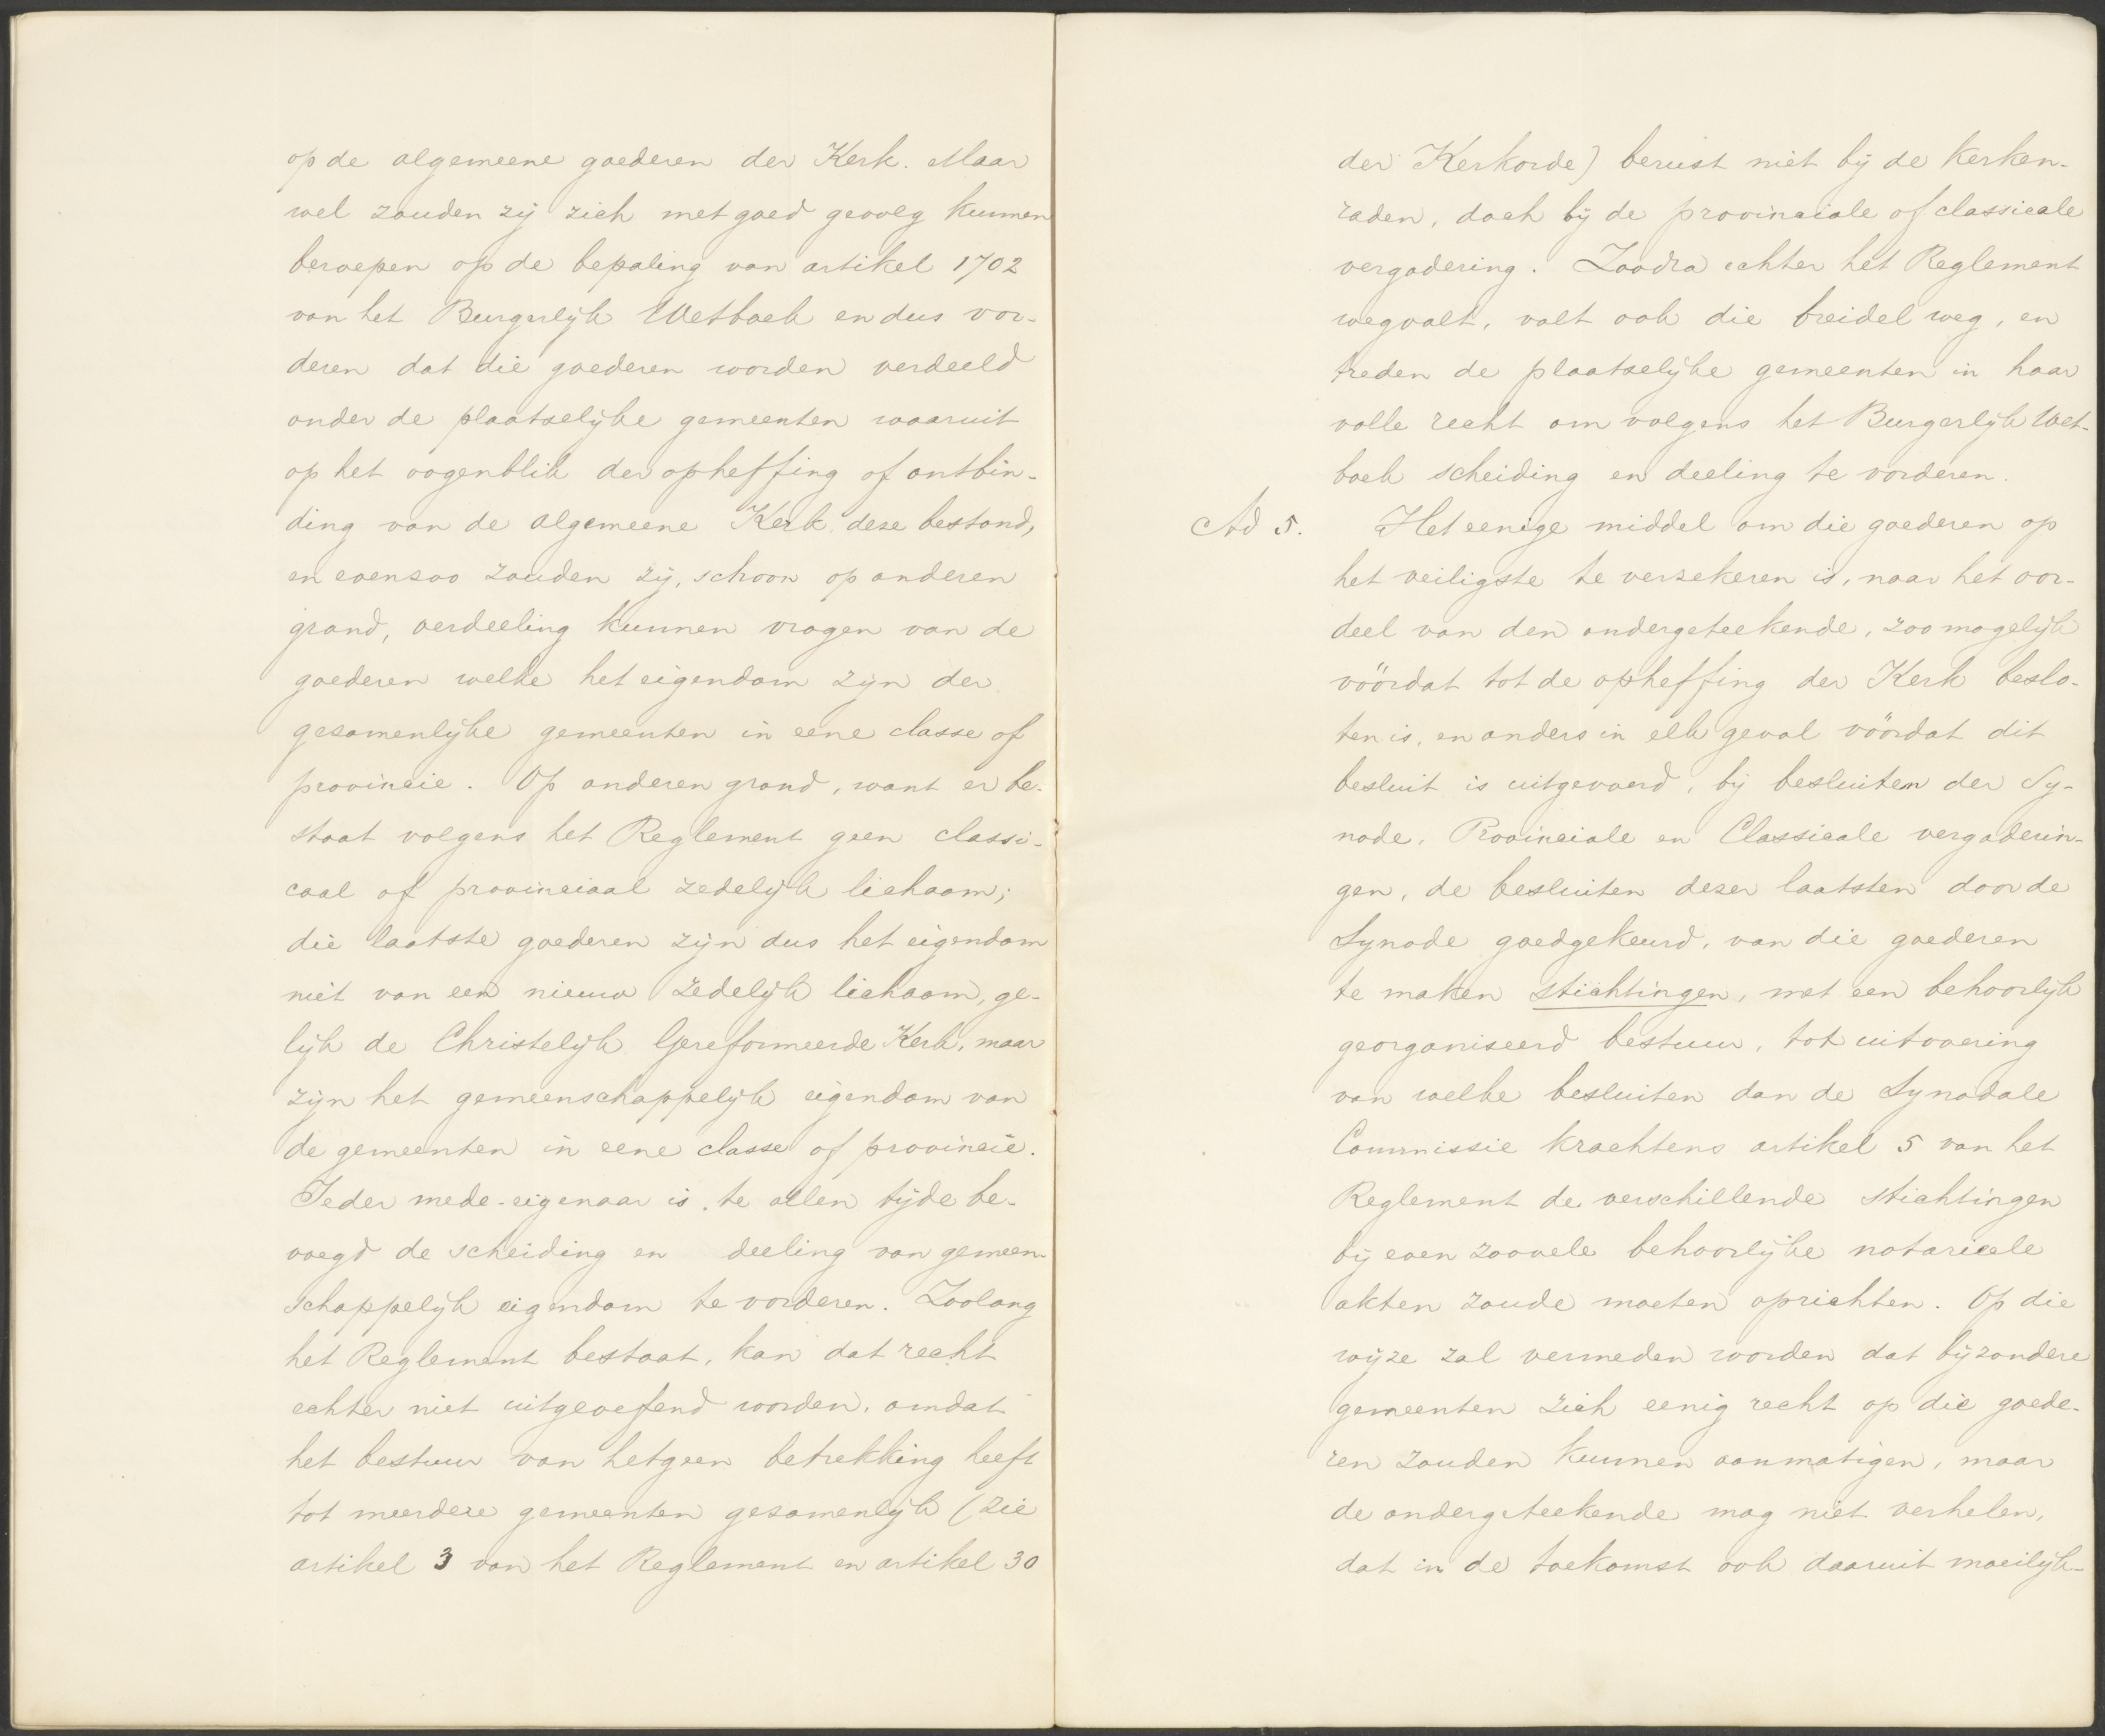 op de algemeene goederen der Kerk. Maar
wel zouden zij zich met goed gevolg kunnen
beroepen op de bepaling van artikel 1702
van het Burgerlijk Wetboek en dus vor-
deren dat die goederen worden verdeeld
onder de plaatselijke gemeenten waaruit
op het oogenblik der opheffing of ontbin-
ding van de algemeene Kerk deze bestond,
en evenzoo zouden zij, schoon op anderen
grond, verdeeling kunnen vragen van de
goederen welke het eigendom zijn der
gezamenlijke gemeenten in eene classe of
provincie. Op anderen grond, want er be-
staat volgens het Reglement geen classi-
caal of provinciaal zedelijk lichaam;
die laatste goederen zijn dus het eigendom
niet van een nieuw zedelijk lichaam, ge-
lijk de Christelijk Gereformeerde Kerk, maar
zijn het gemeenschappelijk eigendom van
de gemeenten in eene classe of provincie.
Ieder mede-eigenaar is te allen tijde be-
voegd de scheiding en deeling van gemeen-
schappelijk eigendom te vorderen. Zoolang
het Reglement bestaat, kan dat recht
echter niet uitgeoefend worden, omdat
het bestuur van hetgeen betrekking heeft
tot meerdere gemeenten gezamenlijk (zie
artikel 3 van het Reglement en artikel 30
der Kerkorde) berust niet bij de kerken-
raden, doch bij de provinciale of classicale
vergadering. Zoodra echter het Reglement
wegvalt, valt ook die breidel weg, en
treden de plaatselijke gemeenten in haar
volle recht om volgens het Burgerlijk Wet-
boek scheiding en deeling te vorderen.
Ad 5. Het eenige middel om die goederen op
het veiligste te verzekeren is, naar het oor-
deel van den ondergeteekende, zoo mogelijk
vöördat tot de opheffing der Kerk beslo-
ten is, en anders in elk geval vöördat dit
besluit is uitgevoerd, bij besluiten der Sy-
node, Provinciale en Classicale vergaderin-
gen, de besluiten dezer laatsten door de
Synode goedgekeurd, van die goederen
te maken stichtingen, met een behoorlijk
georganiseerd bestuur, tot uitvoering
van welke besluiten dan de Synodale
Commissie krachtens artikel 5 van het
Reglement de verschillende stichtingen
bij even zoovele behoorlijke notarieele
akten zoude moeten oprichten. Op die
wijze zal vermeden worden dat bijzondere
gemeenten zich eenig recht op die goede-
ren zouden kunnen aanmatigen, maar
de ondergeteekende mag niet verhelen,
dat in de toekomst ook daaruit moeilijk-